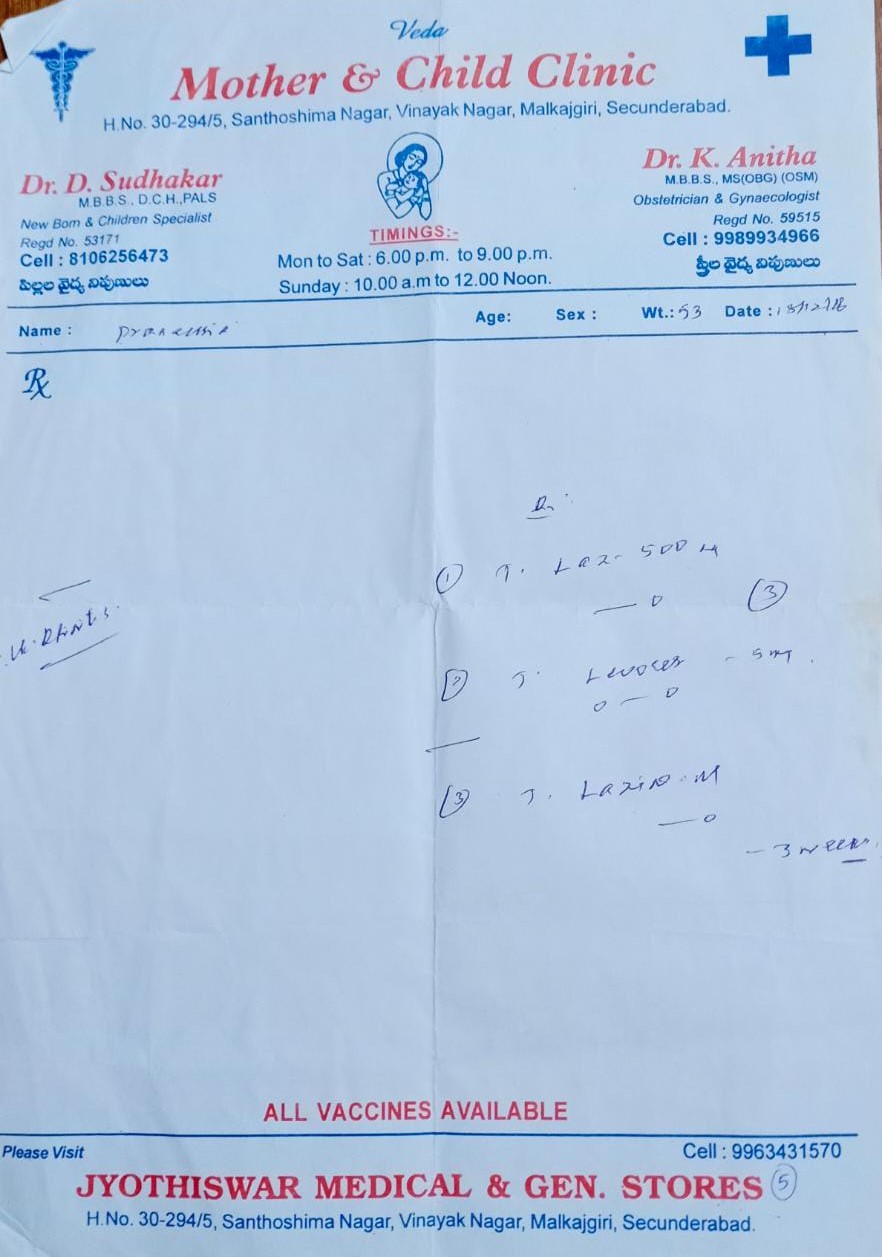 Veda
Mother & Child Clinic
H.No. 30-294/5, Santhoshima Nagar, Vinayak Nagar, Malkajgiri, Secunderabad.
Dr. D. Sudhakar
M.B.B.S., D.C.H.,PALS
New Born & Children Specialist
Regd No. 53171
Cell : 8106256473
పిల్లల వైద్య నిపుణులు
TIMINGS:-
Mon to Sat : 6.00 p.m. to 9.00 p.m.
Sunday : 10.00 a.m to 12.00 Noon.
Dr. K. Anitha
M.B.B.S., MS(OBG) (OSM)
Obstetrician & Gynaecologist
Regd No. 59515
Cell : 9989934966
స్త్రీల వైద్య నిపుణులు
Name : Age: Sex : Wt.: 53 Date :
Rx
① T. 500
— 0 ③
② T. - 5 mg.
0 — 0
③ T. - M
— 0
- 3 weeks
ALL VACCINES AVAILABLE
Please Visit Cell : 9963431570
JYOTHISWAR MEDICAL & GEN. STORES ⑤
H.No. 30-294/5, Santhoshima Nagar, Vinayak Nagar, Malkajgiri, Secunderabad.